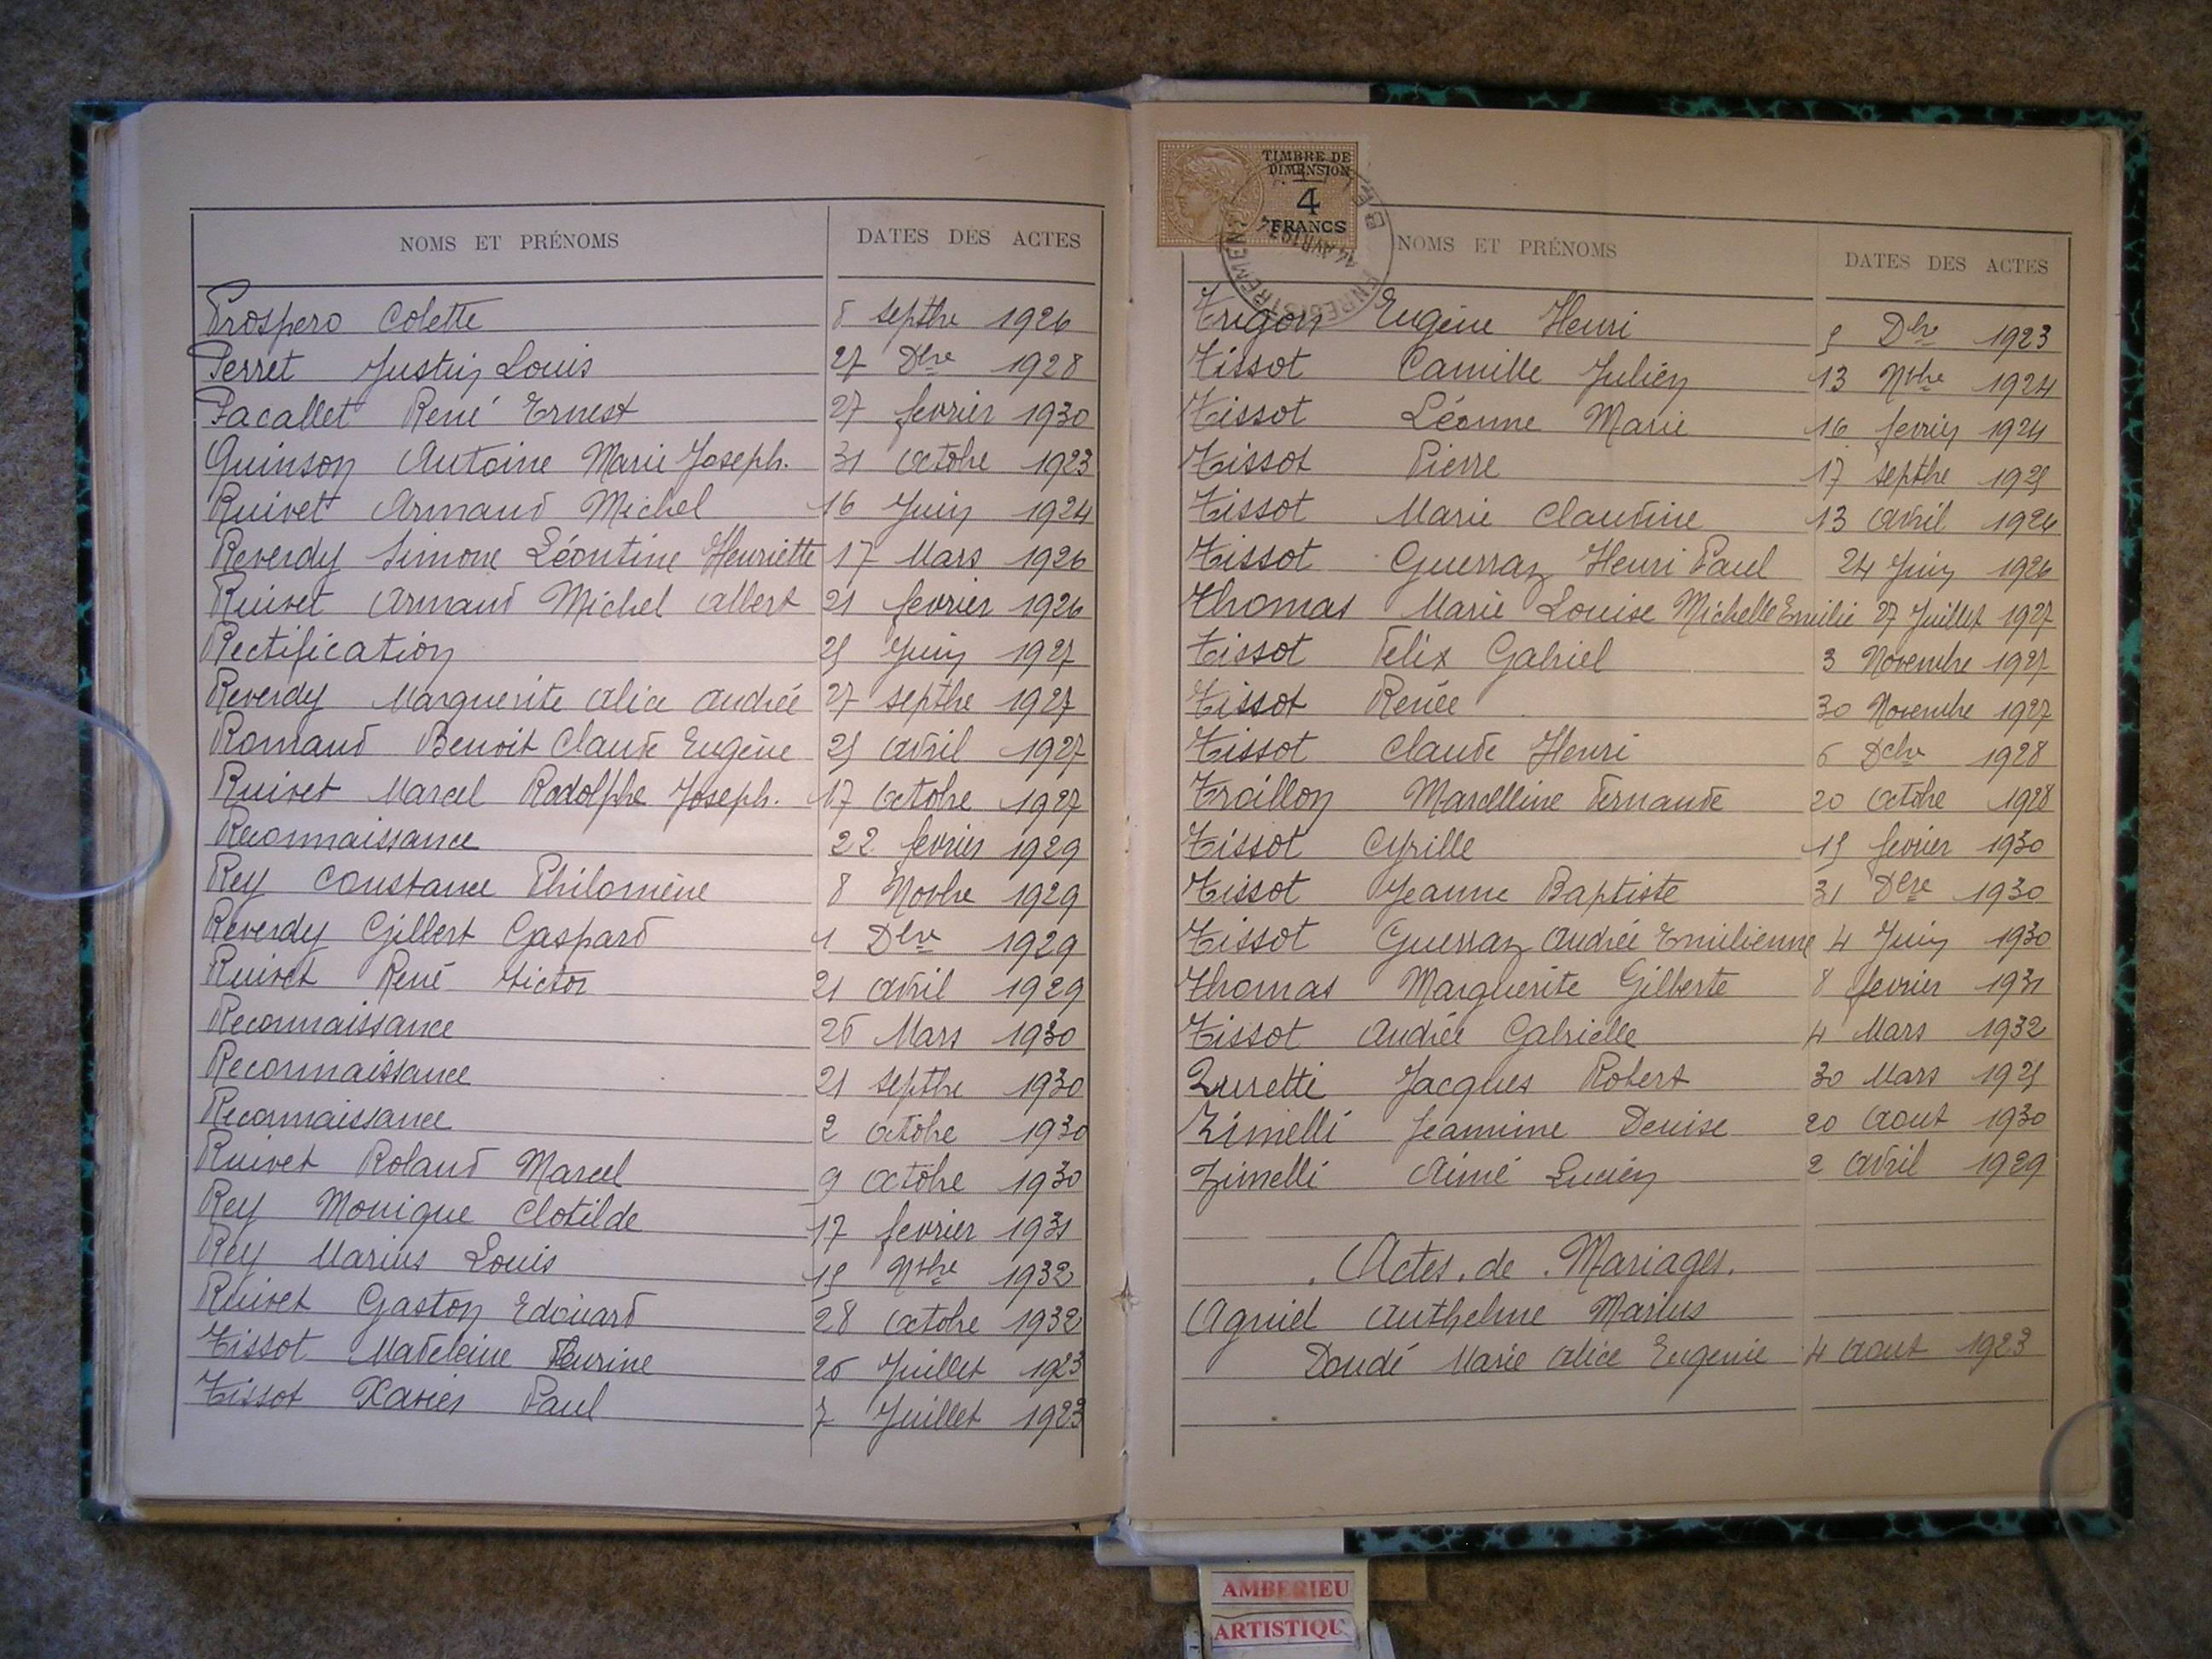 NOMS ET PRÉNOMS DATES DES ACTES
Prospero Colette 8 septbre 1926
Perret Justin Louis 27 Dbre 1928
Pacallet René Ernest 27 fevrier 1930
Quinson Antoine Marie Joseph. 31 octobre 1923
Ruivet Armand Michel 16 Juin 1924
Reverdy Simone Léontine Henriette 17 Mars 1926
Ruivet Armand Michel Albert 21 fevrier 1926
Rectification 25 Juin 1927
Reverdy Marguerite Alice Andrée 27 septbre 1927
Romand Benoit Claude Eugène 25 Avril 1927
Ruivet Marcel Rodolphe Joseph. 17 Octobre 1927
Reconnaissance 22 fevrier 1929
Rey Constance Philomène 8 Novbre 1929
Reverdy Gilbert Gaspard 1 Dbre 1929
Ruivet René Victor 21 avril 1929
Reconnaissance 26 Mars 1930
Reconnaissance 21 septbre 1930
Reconnaissance 2 octobre 1930
Ruivet Roland Marcel 9 octobre 1930
Rey Monique Clotilde 17 fevrier 1931
Rey Marius Louis 15 Nbre 1932
Ruivet Gaston Edouard 28 octobre 1932
Tissot Madeleine 26 Juillet 1923
Tissot Xavier Paul 7 Juillet 1923
TIMBRE DE
DIMENSION
4
FRANCS
ENREGISTREMENT
14 AVR
NOMS ET PRÉNOMS DATES DES ACTES
Trigon Eugène Henri 5 Dbre 1923
Tissot Camille Julien 13 Nbre 1924
Tissot Léonne Marie 16 fevrier 1924
Tissot Pierre 17 septbre 1925
Tissot Marie Claudine 13 Avril 1926
Tissot Guerraz Henri Paul 24 Juin 1926
Thomas Marie Louise Michelle Emilie 27 Juillet 1927
Tissot Felix Gabriel 3 Novembre 1927
Tissot Renée 30 Novembre 1927
Tissot Claude Henri 6 Dcbre 1928
Traillon Marcelline Fernande 20 Octobre 1928
Tissot Cyrille 15 fevrier 1930
Tissot Jeanne Baptiste 31 Dbre 1930
Tissot Guerraz Andrée Emilienne 4 Juin 1930
Thomas Marguerite Gilberte 8 fevrier 1931
Tissot Andrée Gabrielle 4 Mars 1932
Zuretti Jacques Robert 30 Mars 1925
Zimelli Jeannine Denise 20 Aout 1930
Zimelli Aimé Lucien 2 Avril 1929
Actes de Mariages.
Agniel Anthelme Marius
Doudé Marie Alice Eugenie 4 Aout 1923
AMBERIEU
ARTISTIQU